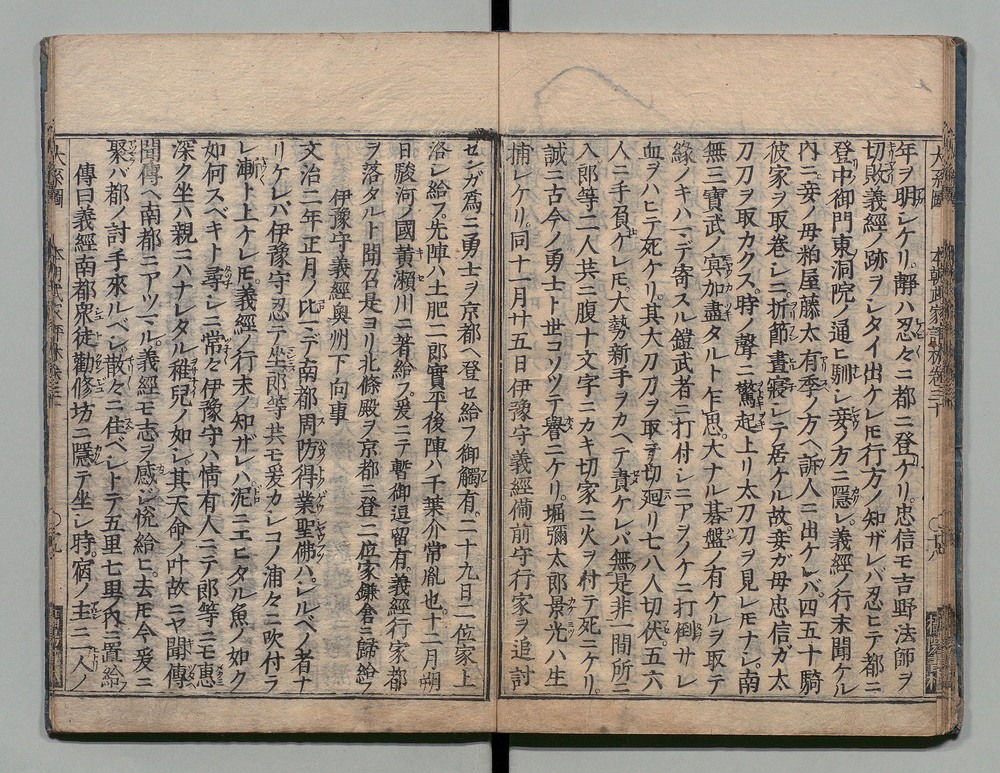 年ヲ明シケリ。靜ハ忍々ニ都ニ登ケリ。忠信モ吉野法師ヲ
切敗義經ノ跡ヲシタイ出ケレ𪜈行方ノ知ザレバ忍ヒテ都ニ
登中御門東洞院ノ通ヒ馴シ妾ノ方ニ隱レ。義經ノ行末聞ケル
內ニ妾ノ母粕屋藤太有季ノ方ヘ訴人ニ出ケレバ。四五十騎
彼家ヲ取卷シニ。折節晝寢シテ居ケル故。妾ガ母忠信ガ太
刀刀ヲ取カクス。時ノ聲ニ驚起上リ太刀刀ヲ見レ𪜈ナシ。南
無三寶武ノ冥加盡タルト乍思。大ナル碁盤ノ有ケルヲ取テ
緣ノキハマデ寄スル鎧武者ニ打付シニアヲノケニ打倒サレ
血ヲハヒテ死ケリ。其大刀刀ヲ取テ切廻リ七八人切伏。五六
人ニ手負ケレ𪜈。大勢新手ヲカヘテ責ケレバ無是非一間所ニ
入郎等二人共ニ腹十文字ニカキ切家ニ火ヲ付テ死ニケリ。
誠ニ古今ノ勇士ト世コソツテ譽ニケリ。堀彌太郎景光ハ生
捕レケリ。同十一月廿五日伊豫守義經備前守行家ヲ追討
センガ爲ニ勇士ヲ京都ヘ登セ給フ御觸有。二十九日二位家上
洛シ給フ。先陣ハ土肥二郎實平後陣ハ千葉介常胤也。十二月朔
日駿河ノ國黃瀨川ニ著給フ。爰ニテ暫御逗留有。義經行家都
ヲ落タルト聞召是ヨリ北條殿ヲ京都ニ登二位家鎌倉ニ歸給フ
伊豫守義經奧州下向事
文治二年正月ノ比マデ南都周防得業聖佛ハ。シルベノ者ナ
リケレバ伊豫守忍テ坐郎等共モ爰カシコノ浦々ニ吹付ラ
レ漸ト上ケレ𪜈。義經ノ行末ノ知ザレハ泥ニエヒタル魚ノ如ク
如何スベキト尋シニ常々伊豫守ハ情有人ニテ郎等ニモ惠
深ク坐ハ親ニハナレタル稚兒ノ如シ其天命ノ叶故ニヤ聞傳
聞傳ヘ南都ニアツマル。義經モ志ヲ感シ悅給ヒ。去𪜈今爰ニ
聚バ都ノ討手來ルベシ散々ニ住ベシトテ五里七里ノ內ニ置給フ
傳曰義經南都衆徒勸修坊ニ隱テ坐シ時。宿ノ主二人ノ